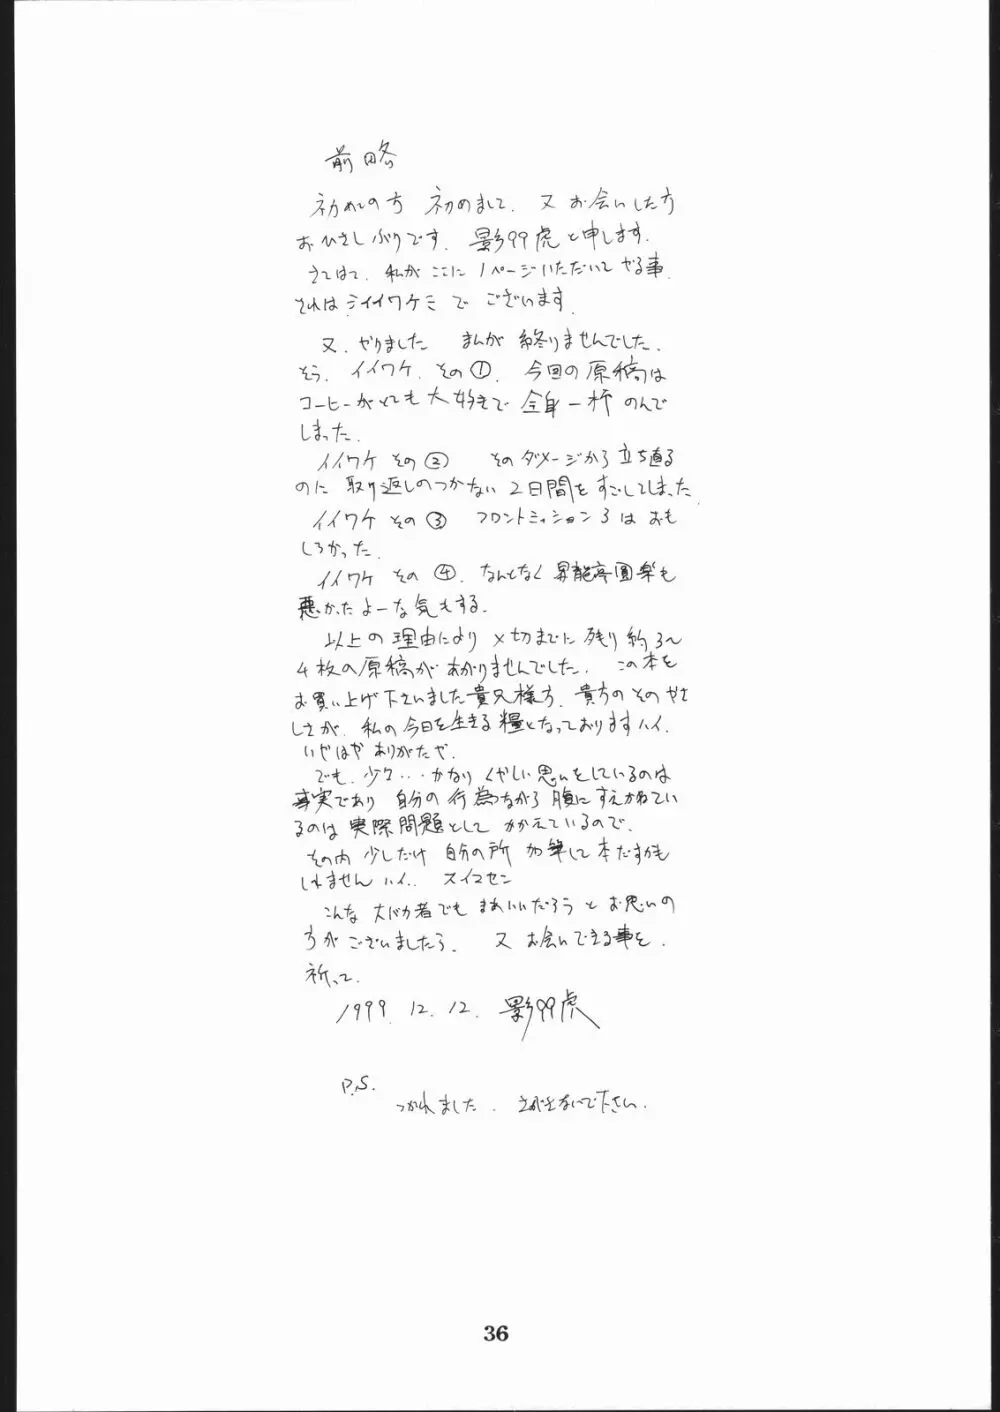 前略
初めての方 初めまして、又お会いした方
おひさしぶりです。影99虎と申します。
さてはて、私がここに1ページいただいてやる事、
それはミイイワケミでございます。
又、やりました まんが終りませんでした。
そう、イイワケ、その①、今回の原稿は
コーヒーがとても大好きで全身一杯のんで
しまった。
イイワケその② そのダメージから立ち直る
のに取り返しのつかない2日間をすごしてしまった
イイワケその③ フロントミッション3はおも
しろかった。
イイワケその④、なんとなく昇龍亭圓楽も
悪かったよーな気もする。
以上の理由により〆切までに残り約3〜
4枚の原稿があがりませんでした。この本を
お買い上げ下さいました貴兄様方、貴方のそのやさ
しさが、私の今日を生きる糧となっておりますハイ、
いやはやありがたや。
でも、少々…かなりくやしい思いをしているのは
事実であり自分の行為ながら腹にすえかねてい
るのは実際問題としてかかえているので、
その内少しだけ自分の所加筆して本だすかも
しれませんハイ.. スイマセン
こんな大バカ者でもまあいいだろうとお思いの
方がございましたら、又お会いできる事を、
祈って、
1999.12.12. 影99虎
P.S.
つかれました、さがさないで下さい、
36